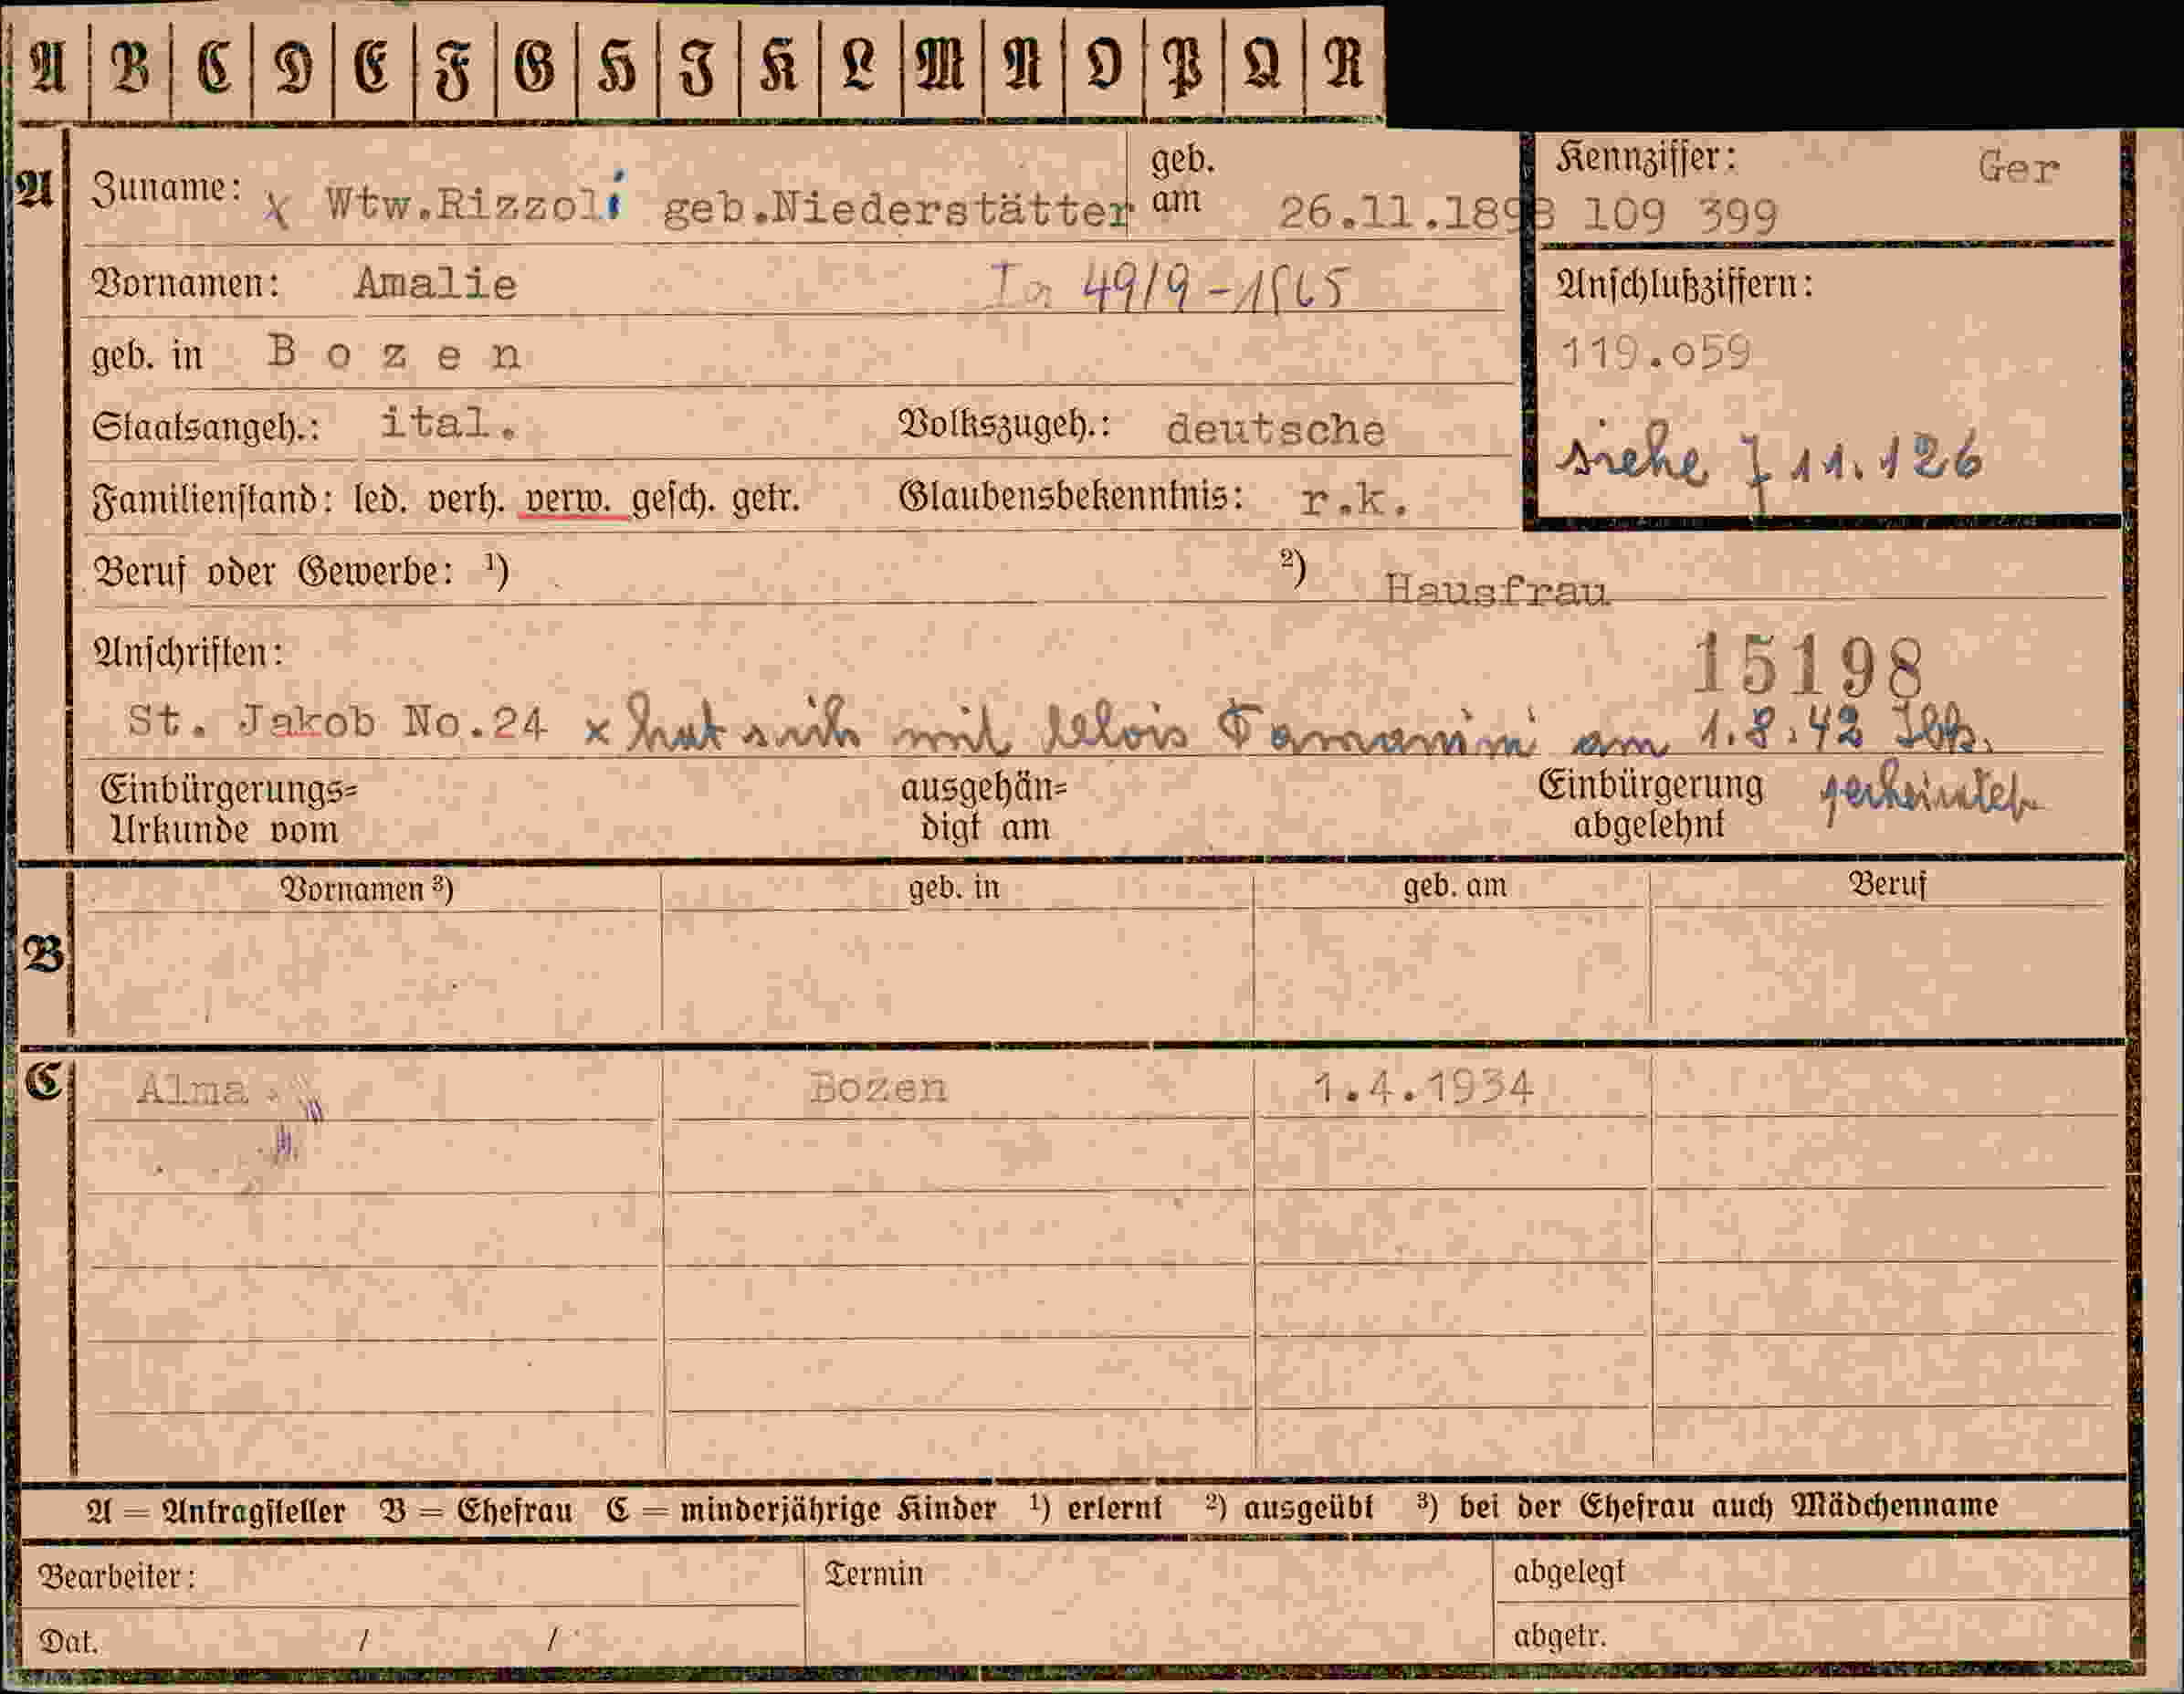 A B C D E F G H I K L M N O P Q R
A Zuname: x Wtw.Rizzoli geb.Niederstätter geb. am 26.11.1898
Kennziffer: Ger
109 399
Vornamen: Amalie 49/9-1565
Anschlußziffern:
119.059
siehe J 11.126
geb. in Bozen
Staatsangeh.: ital. Volkszugeh.: deutsche
Familienstand: led. verh. verw. gesch. getr. Glaubensbekenntnis: r.k.
Beruf oder Gewerbe: 1) 2) Hausfrau
Anschriften: 15198
St. Jakob No.24 x hat sich mit Alois Tamanini am 1.8.42 Ibk.
verheiratet
Einbürgerungs= ausgehän= Einbürgerung
Urkunde vom digt am abgelehnt
Vornamen 3) geb. in geb. am Beruf
B
C Alma Bozen 1.4.1934
A = Antragsteller B = Ehefrau C = minderjährige Kinder 1) erlernt 2) ausgeübt 3) bei der Ehefrau auch Mädchenname
Bearbeiter: Termin abgelegt
Dat. / / abgetr.